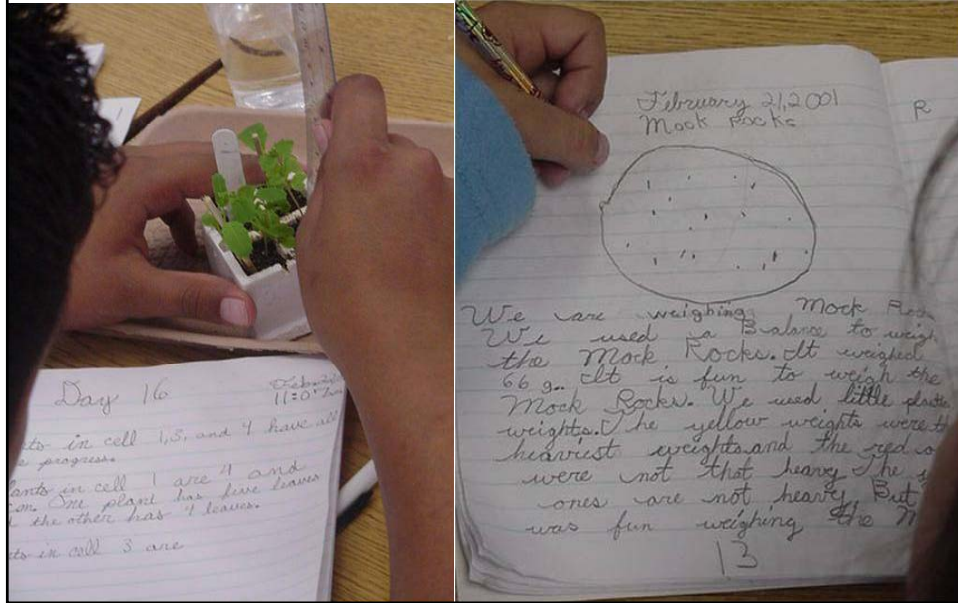 Day 16
11:0
in cell 1,3, and 4 have all
progress.
in cell 1 are 4 and
cm. One plant has five leaves
the other has 4 leaves.
in cell 3 are
February 21,2001
Mock Rocks
R
We are weighing Mock
We used a Balance to
the Mock Rocks. It weighed
66 g. It is fun to weigh the
Mock Rocks. We used little
weights. The yellow weights were
heaviest weights and the red
were not that heavy The
ones are not heavy But
was fun weighing the
13